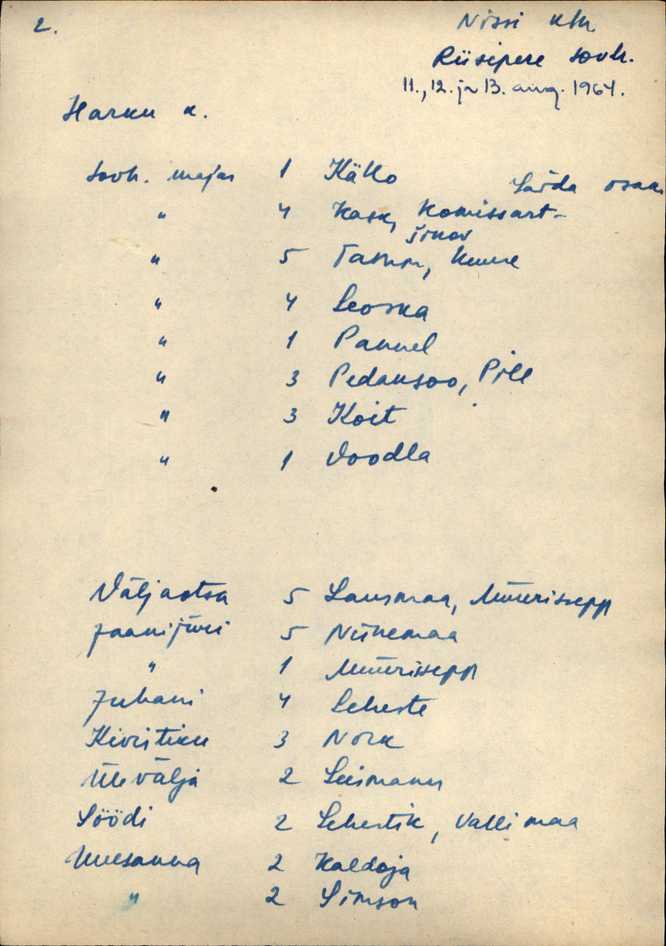 2.
Nissi khk.
Riisipere sovh.
11., 12. ja 13. aug. 1964.
Harku k.
Sovh. majas 1 Källo osas
" 4 Kask, Komissart-
šikov
" 5 Tamm, Kuure
" 4 Leoska
" 1 Pannel
" 3 Pedansoo, Pill
" 3 Koit
" 1 Voodla
Väljaotsa 5 Lausmaa, Müürissepp
Jaanijüri 5 Niinemaa
" 1 Müürissepp
Juhani 4 Leheste
Kivistiku 3 Nork
Ülevälja 2 Leismann
Söödi 2 Lehestik, Vallimaa
Uuesauna 2 Kaldoja
" 2 Simson